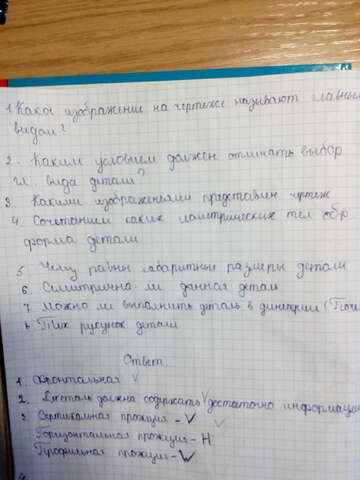 1. Какое изображение на чертеже называют главным
видом?
2. Каким условием должен отличать выбор
гл. вида детали?
3. Какими изображениями представлен чертеж
4 Сочетанием каких геометрических тел обр
форма детали
5 Чему равны габаритные размеры детали
6 Симметрично ли данная деталь
7 Можно ли выполнить деталь в диметрии (Поч
рисунок детали
Ответ.
1. Фронтальная V
2. должна содержать достаточно информаци
3 проэкция - V
Горизонтальная проэкция - H
Профильная проэкция - W